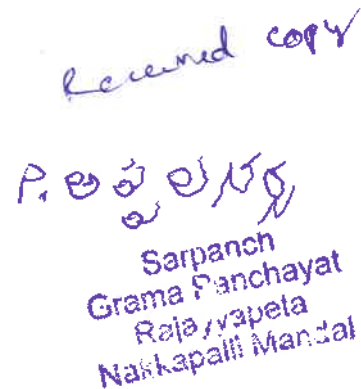 Received copy
P. అప్పలనర్స
Sarpanch
Grama Panchayat
Rajayyapeta
Nakkapalli Mandal